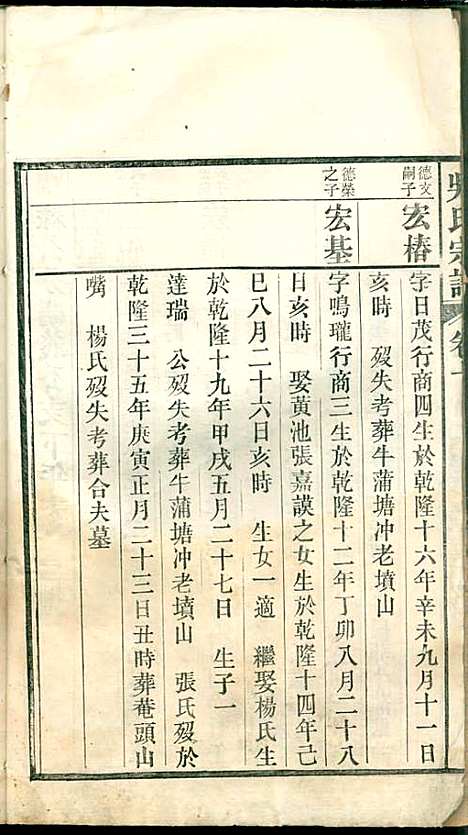 吳氏宗譜 卷一
德文嗣子
宏椿
字日茂行商四生於乾隆十六年辛未九月十一日
亥時 歿失考葬牛蒲塘冲老墳山
德榮之子
宏基
字鳴瓏行商三生於乾隆十二年丁卯八月二十八
日亥時 娶黃池張嘉謨之女生於乾隆十四年己
巳八月二十六日亥時 生女一適 繼娶楊氏生
於乾隆十九年甲戌五月二十七日 生子一
達瑞 公歿失考葬牛蒲塘冲老墳山 張氏歿於
乾隆三十五年庚寅正月二十三日丑時葬菴頭山
嘴 楊氏歿失考葬合夫墓